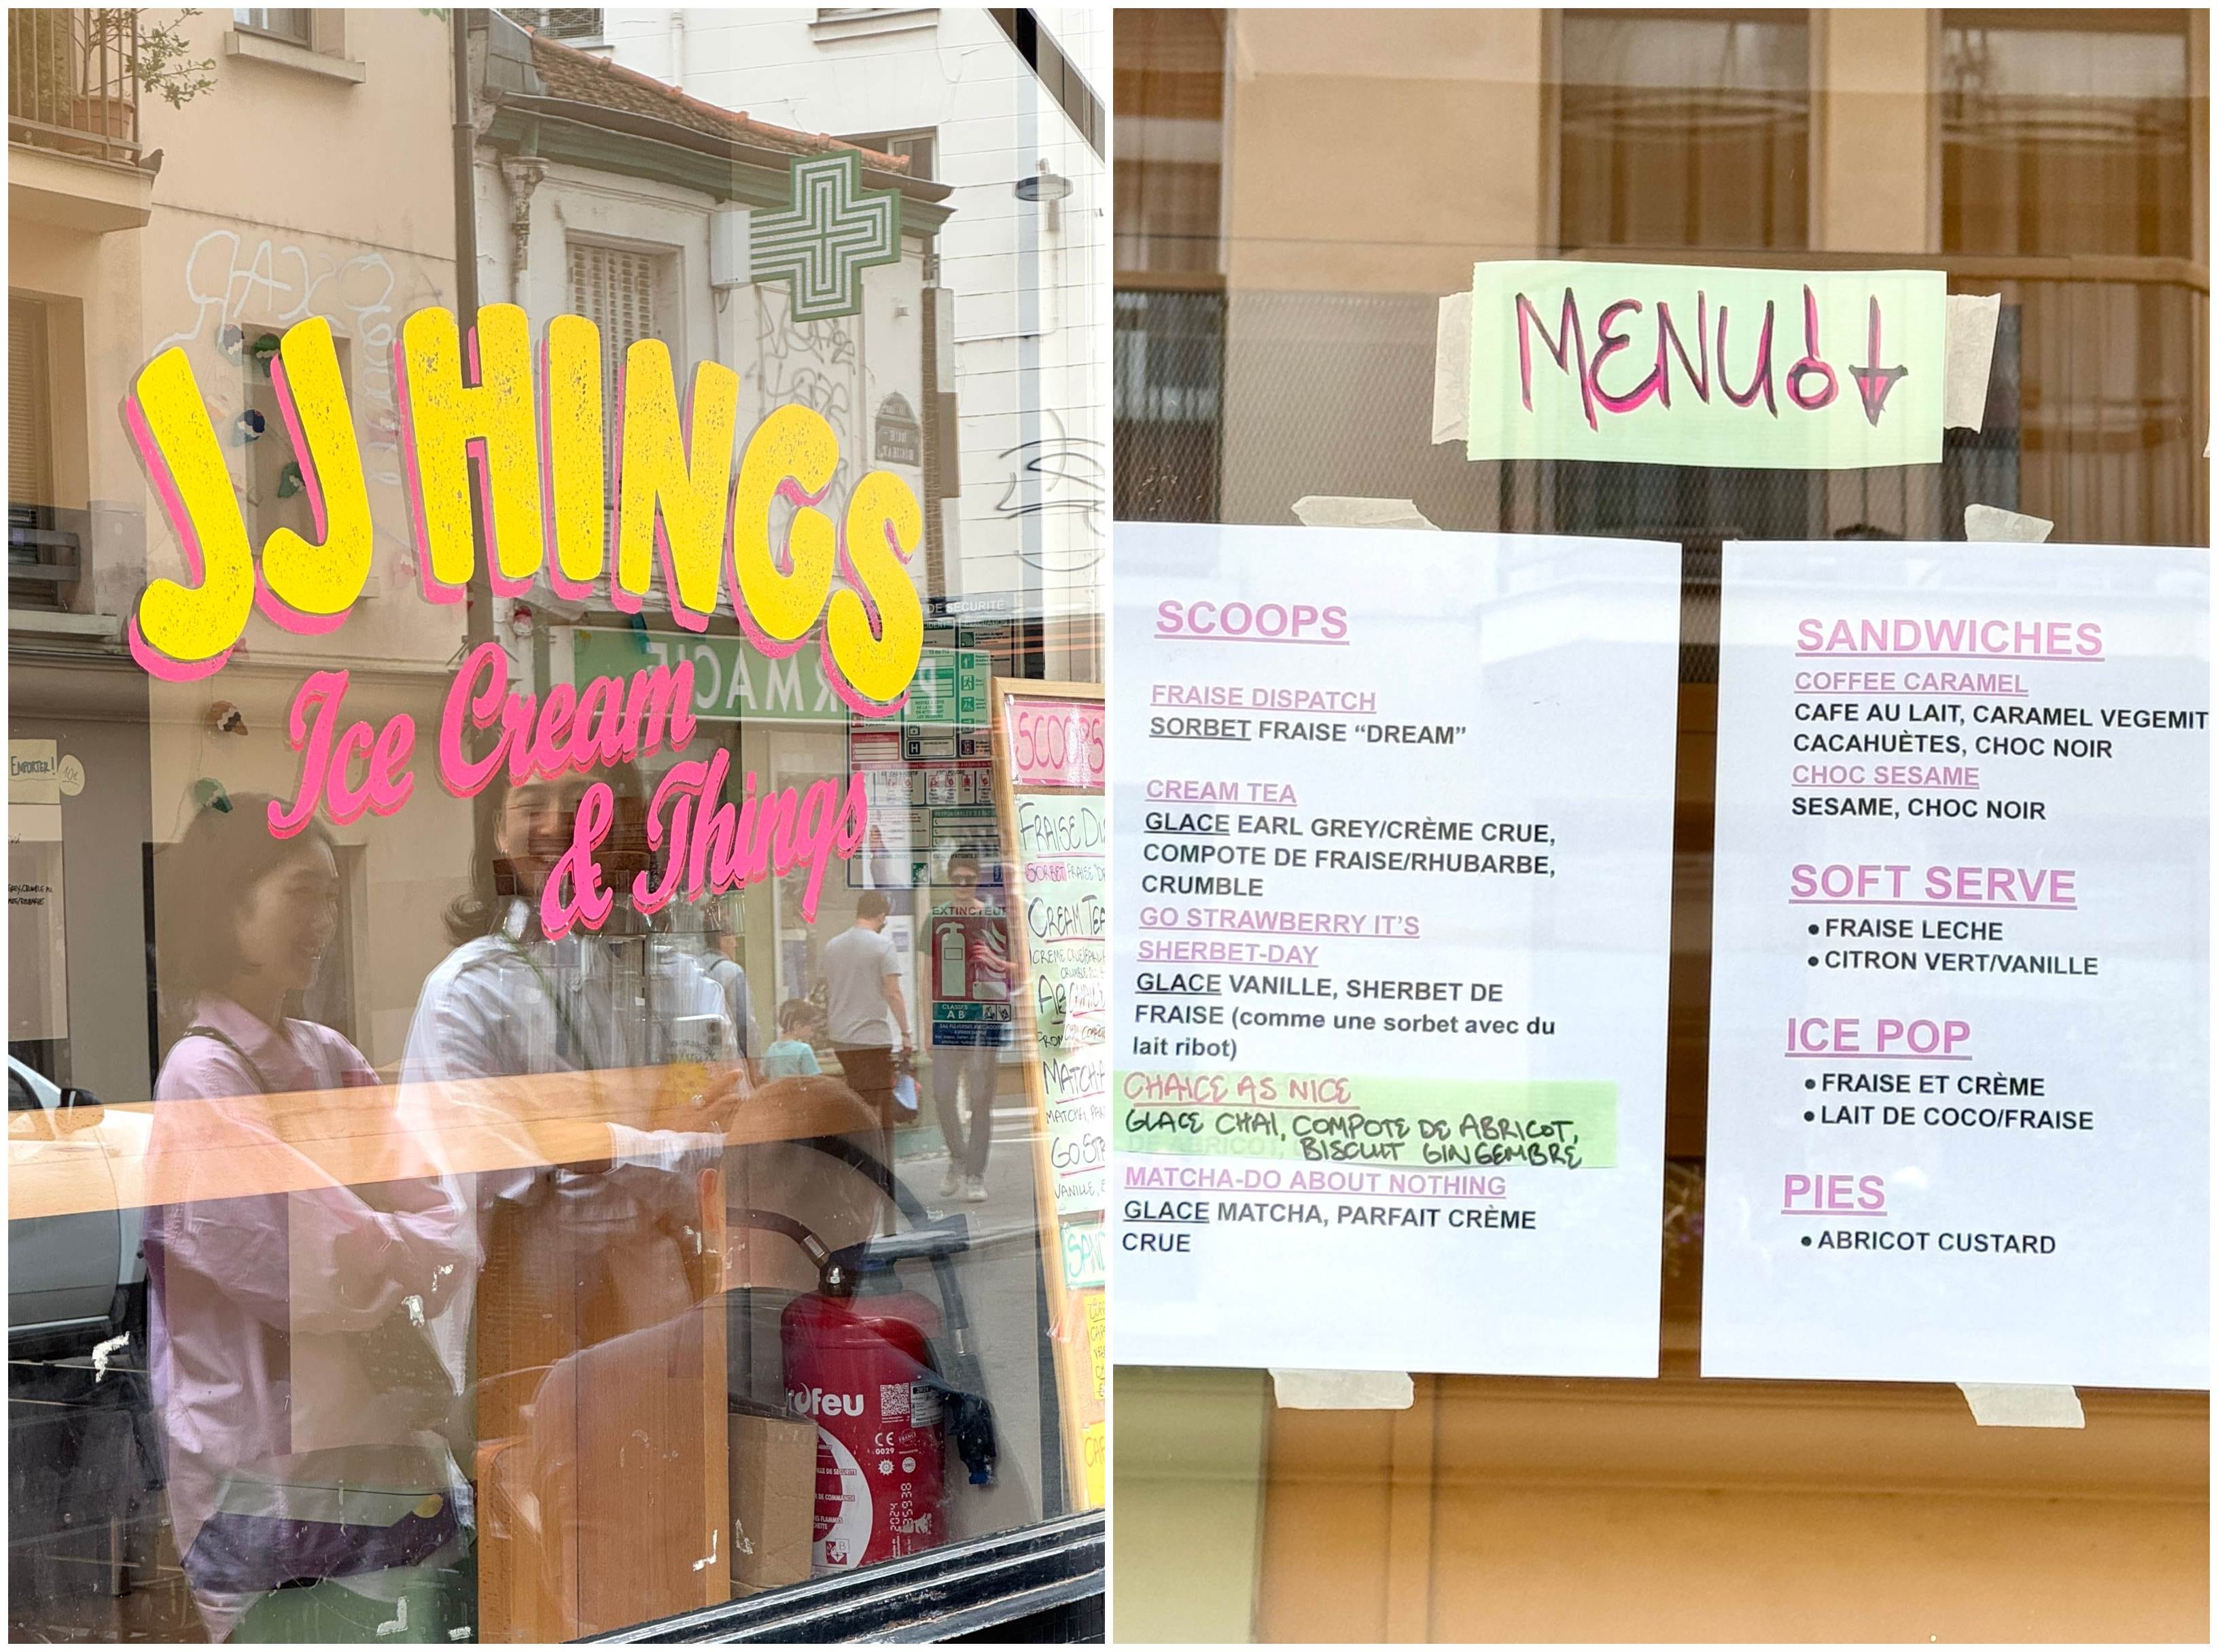 JJ HINGS
Ice Cream
& Things
PHARMACIE
DE SÉCURITÉ
EMPORTER!
10€
EXTINCTEUR
CLASSES
AB
SCOOPS
FRAISE
SORBET FRAISE
CREAM TEA
MATCHA
VANILLE,
ofeu
CE
0029
2024
MENU
SCOOPS
FRAISE DISPATCH
SORBET FRAISE “DREAM”
CREAM TEA
GLACE EARL GREY/CRÈME CRUE,
COMPOTE DE FRAISE/RHUBARBE,
CRUMBLE
GO STRAWBERRY IT’S
SHERBET-DAY
GLACE VANILLE, SHERBET DE
FRAISE (comme une sorbet avec du
lait ribot)
CHAICE AS NICE
GLACE CHAI, COMPOTE DE ABRICOT,
BISCUIT GINGEMBRE
MATCHA-DO ABOUT NOTHING
GLACE MATCHA, PARFAIT CRÈME
CRUE
SANDWICHES
COFFEE CARAMEL
CAFE AU LAIT, CARAMEL VEGEMIT
CACAHUÈTES, CHOC NOIR
CHOC SESAME
SESAME, CHOC NOIR
SOFT SERVE
• FRAISE LECHE
• CITRON VERT/VANILLE
ICE POP
• FRAISE ET CRÈME
• LAIT DE COCO/FRAISE
PIES
• ABRICOT CUSTARD